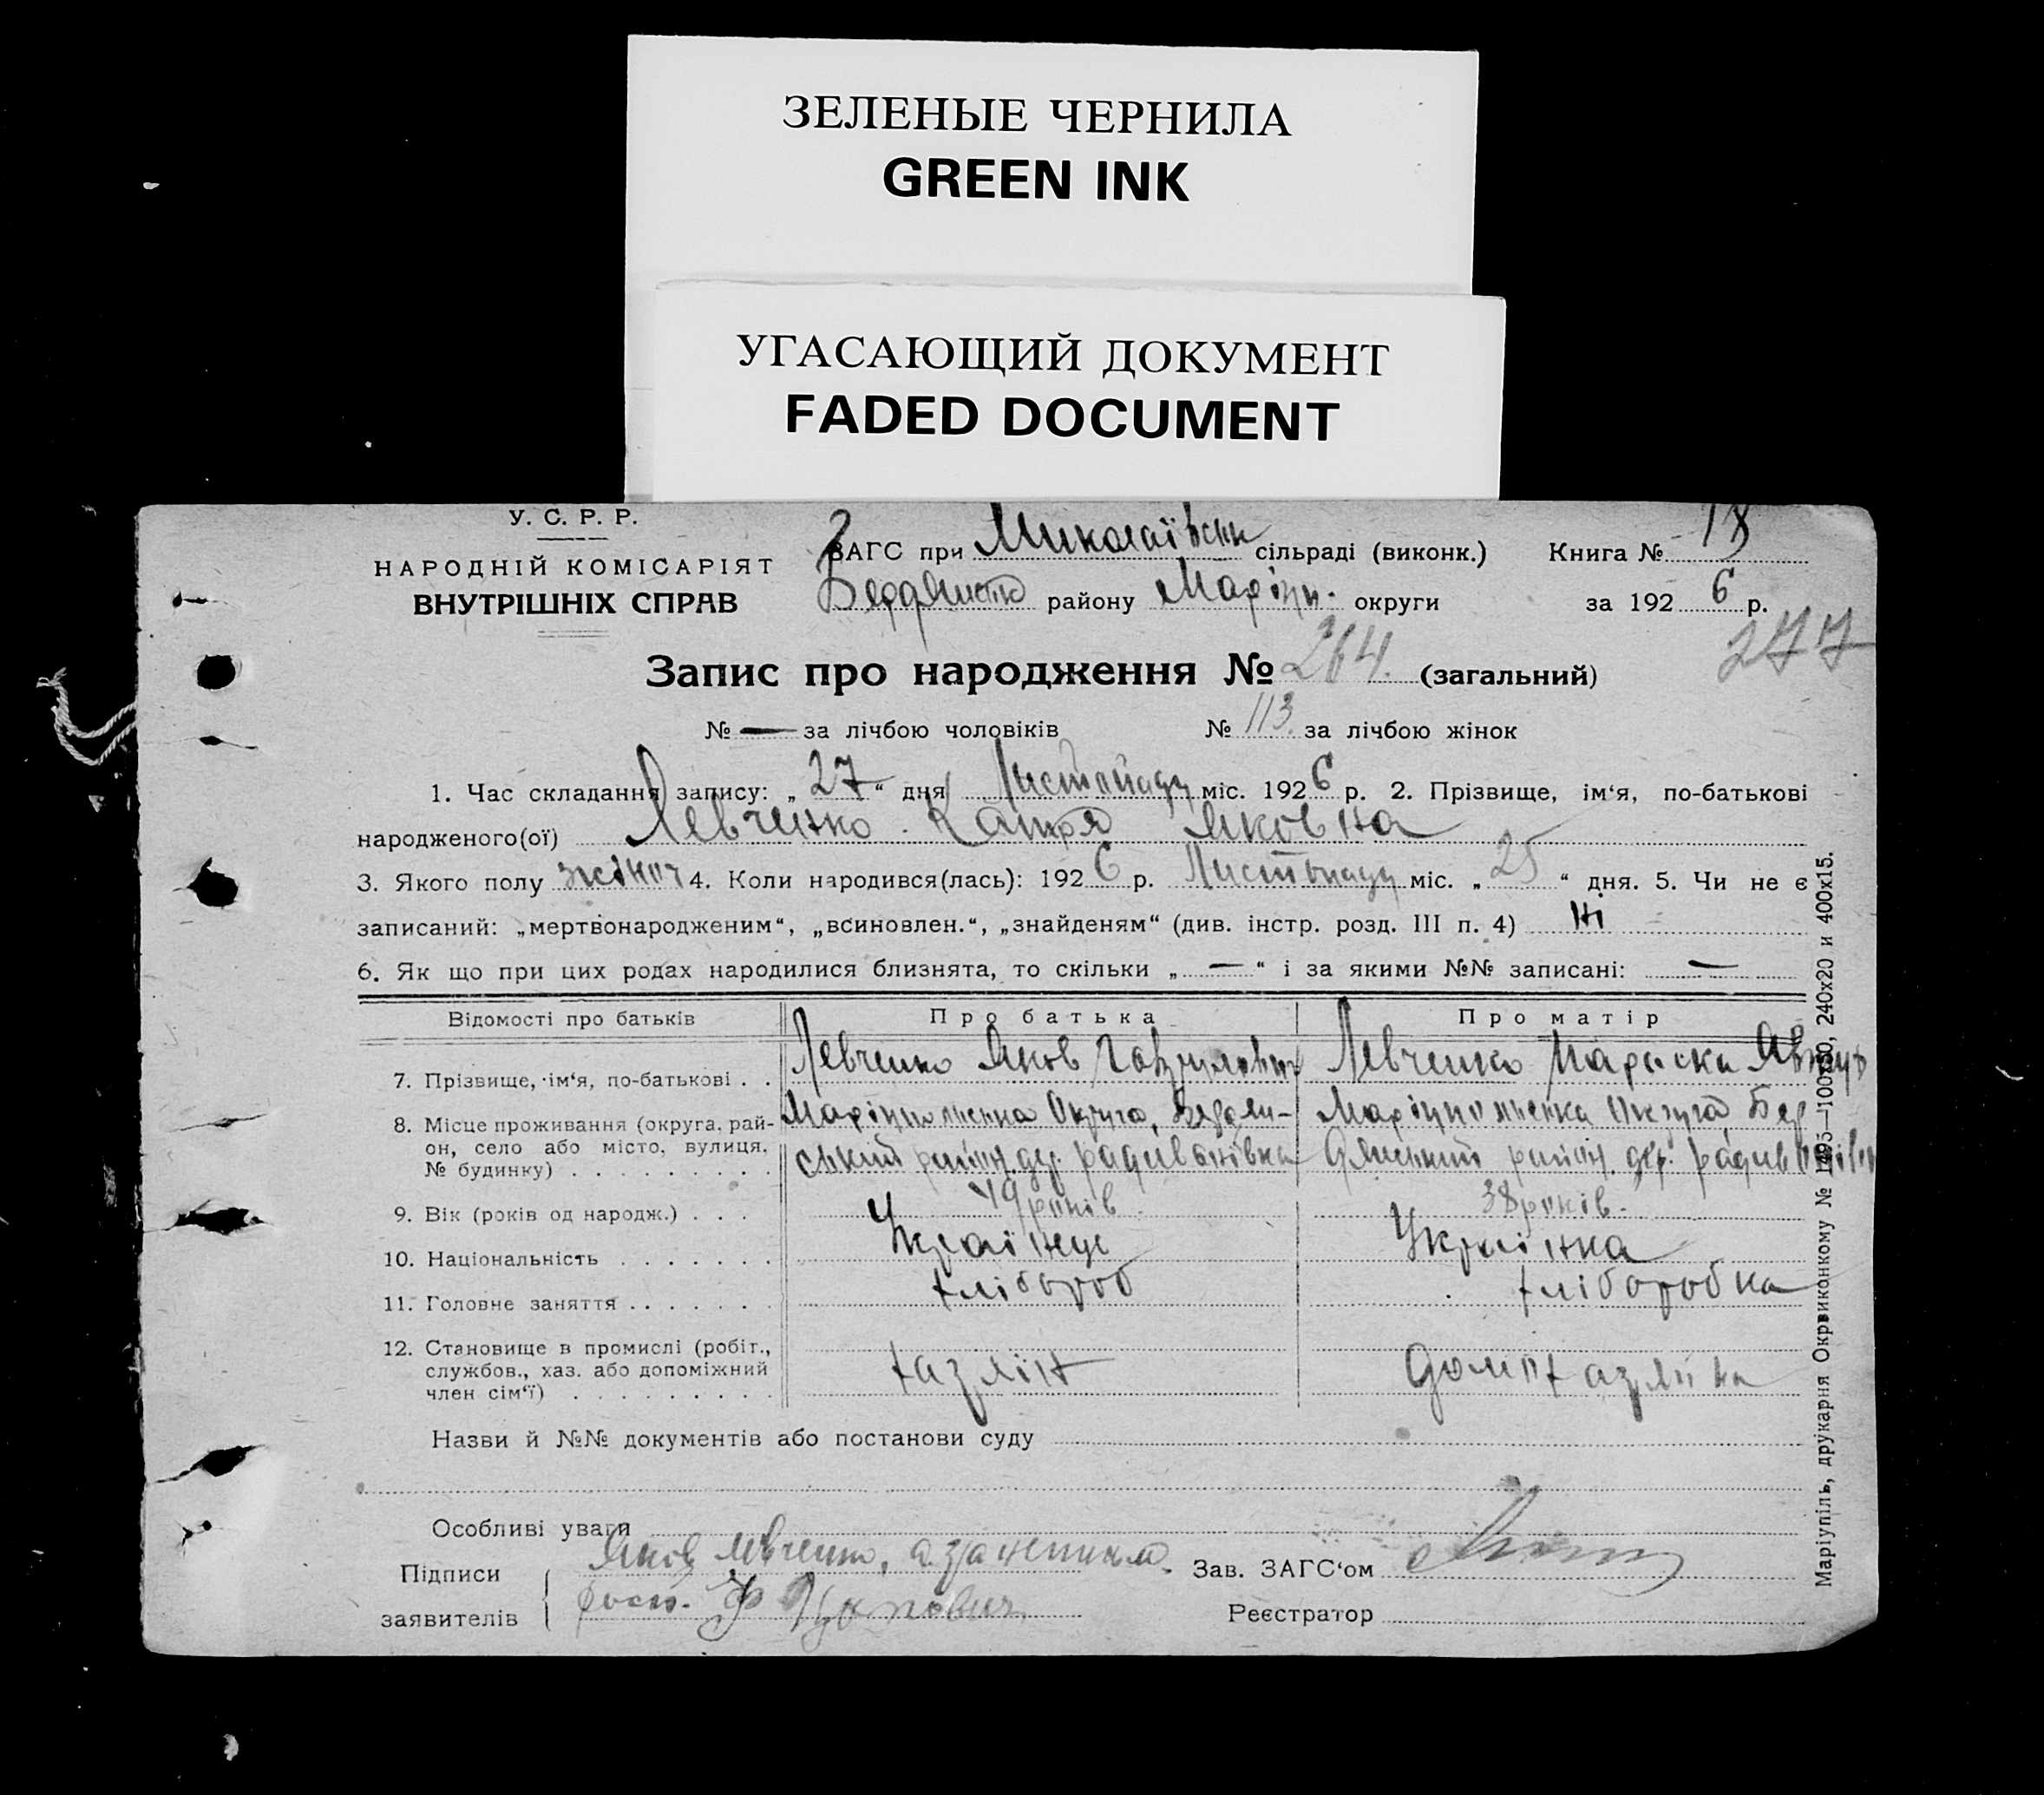 ЗЕЛЕНЫЕ ЧЕРНИЛА
GREEN INK
УГАСАЮЩИЙ ДОКУМЕНТ
FADED DOCUMENT
У. С. Р. Р.
НАРОДНІЙ КОМІСАРІЯТ
ВНУТРІШНІХ СПРАВ
ЗАГС при Миколаївськ сільраді (виконк.) Книга № 18
району Маріуп. округи за 1926 р.
277
Запис про народження № 264. (загальний)
№ — за лічбою чоловіків № 113. за лічбою жінок
1. Час складання запису: „27“ дня Листопаду міс. 1926 р. 2. Прізвище, ім‘я, по-батькові
народженого(ої) Левченко Катря Яковна
3. Якого полу жіноч 4. Коли народився(лась): 1926 р. Листопаду міс. „25“ дня. 5. Чи не є
записаний: „мертвонародженим“, „всиновлен.“, „знайденям“ (див. інстр. розд. III п. 4) Ні
6. Як що при цих родах народилися близнята, то скільки „—“ і за якими №№ записані: —
Відомості про батьків Про батька Про матір
7. Прізвище, ім‘я, по-батькові . . Левченко Яков Гаврилович Левченко
8. Місце проживання (округа, рай-он, село або місто, вулиця, № будинку) Маріупольська Округа, Бердян-ський район. дер. Радивонівка Маріупольська Округа, Бердянський район. дер. Радивонівка
9. Вік (років од народж.) . . . 49 років 38 років.
10. Національність Українец Українка
11. Головне заняття хлібороб хліборобка
12. Становище в промислі (робіт., службов., хаз. або допоміжний член сім‘ї) хазяїн домохазяїка
Назви й №№ документів або постанови суду
Особливі уваги
Підписи заявителів Яков Левченко, а за неписьм. Зав. ЗАГС‘ом
росп. Реєстратор
Маріупіль, друкарня Окрвиконкому № 1495—100x30, 240x20 и 400x15.